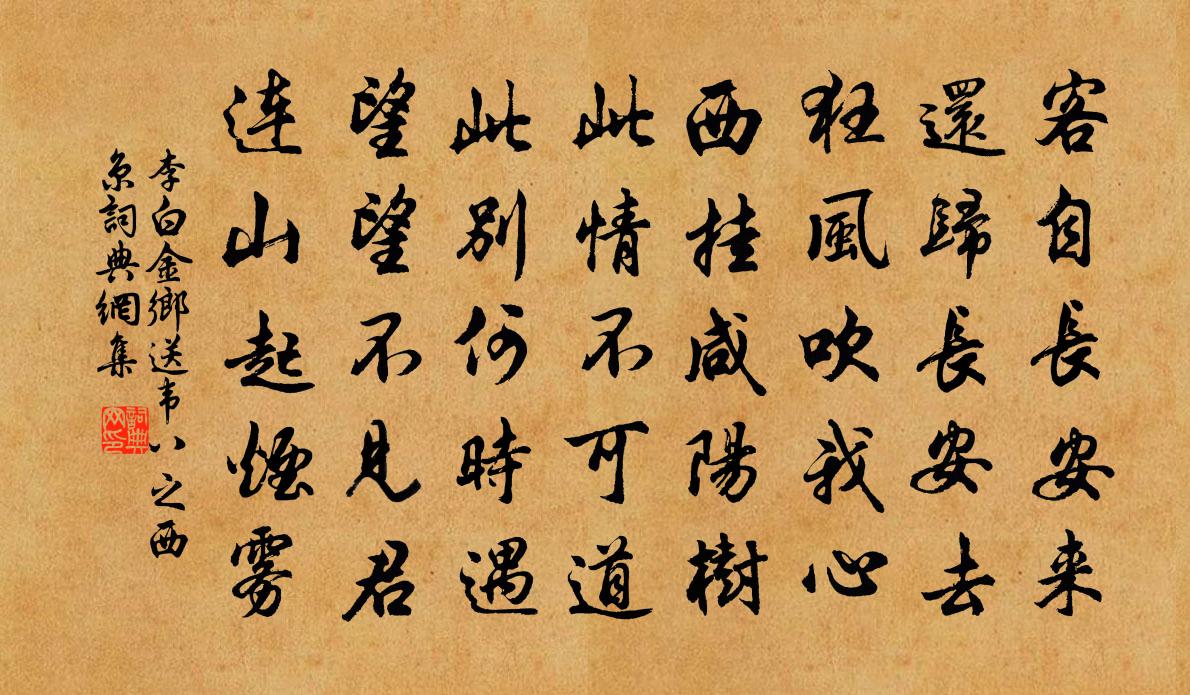 客自長安来
還歸長安去
狂風吹我心
西挂咸陽樹
此情不可道
此別何時遇
望望不見君
連山起煙雾
李白金鄉送韦八之西
京詞典網集
詞典
网印